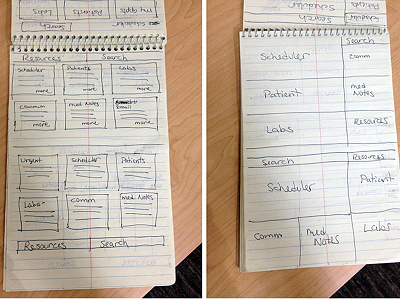 my appts Patients Labs
Scheduler
Resources Search
Scheduler Patients Labs
more more more
Common med Notes Email
more more more
Urgent Scheduler Patients
Labs Comm med Notes
Resources Search
Search
Scheduler Comm
Patient med
Notes
Labs Resources
Search Resources
Scheduler Patient
Comm med
Notes Labs